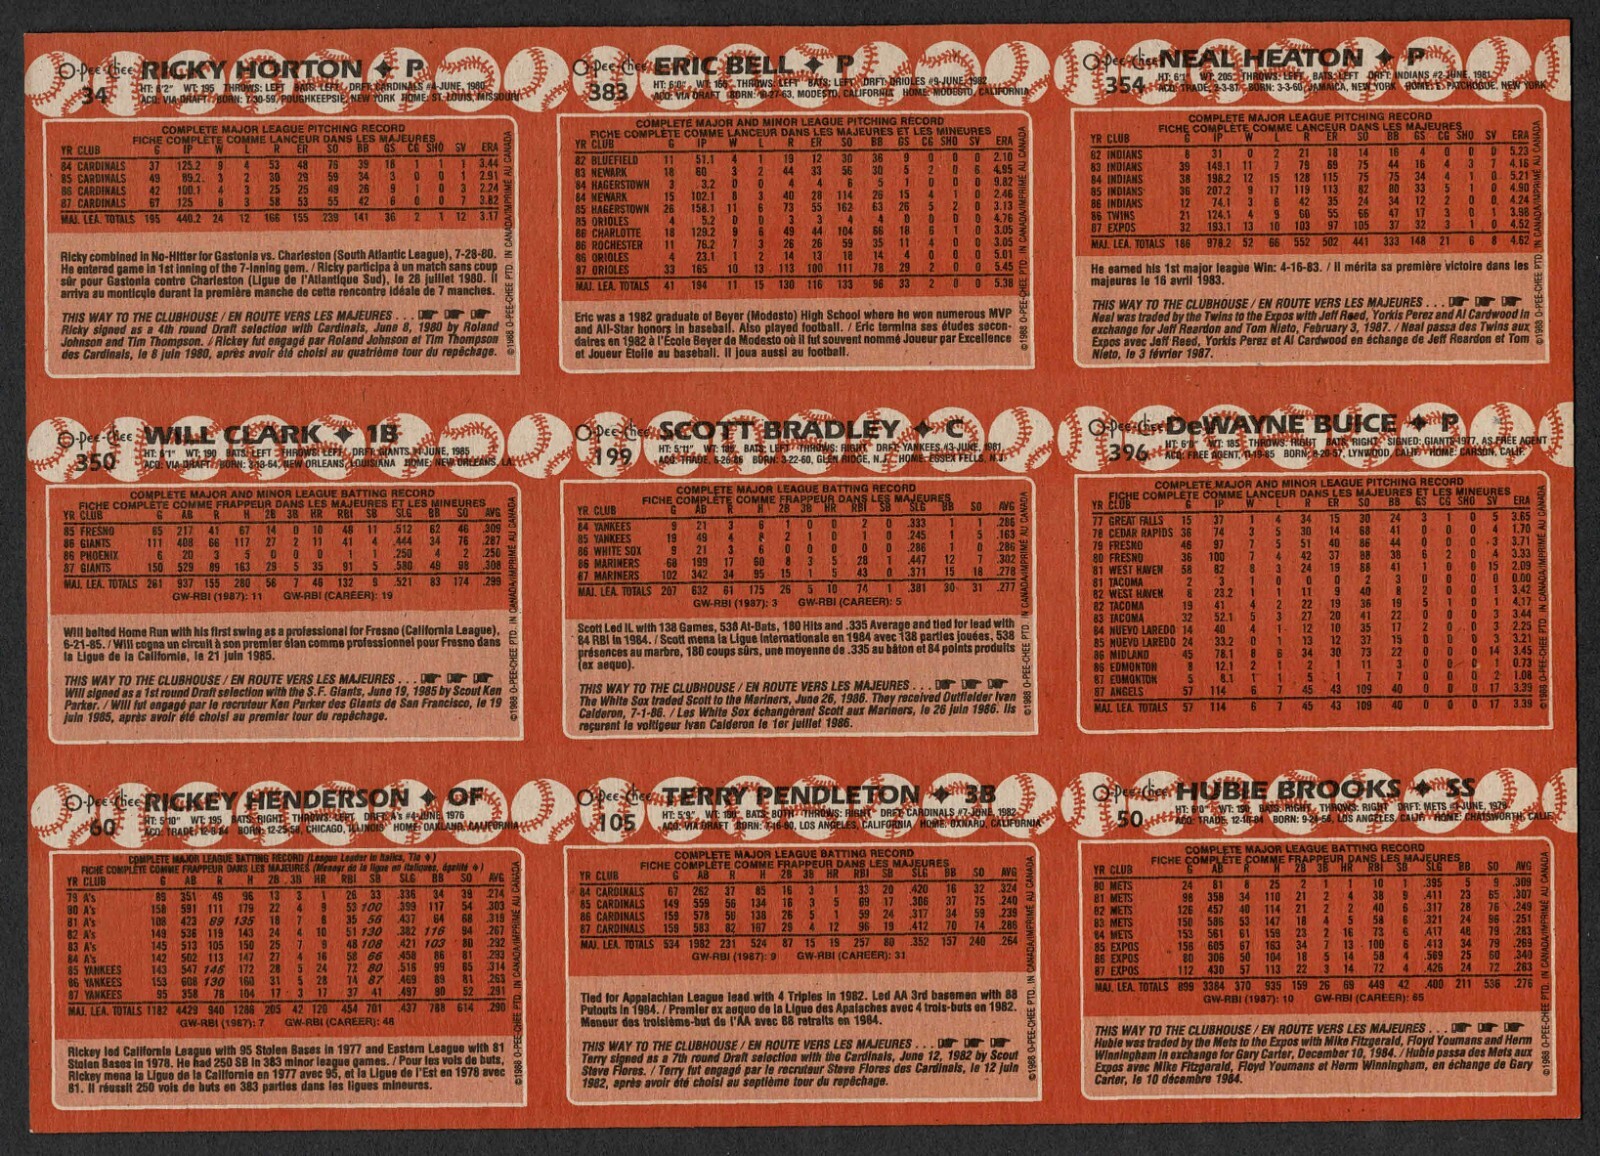 O-Pee-Chee RICKY HORTON ✦ P
34
HT: 6'2" WT: 195 THROWS: LEFT BATS: LEFT DRFT: CARDINALS #4-JUNE, 1980
ACQ: VIA DRAFT BORN: 7-30-59, POUGHKEEPSIE, NEW YORK HOME: ST. LOUIS, MISSOURI
COMPLETE MAJOR LEAGUE PITCHING RECORD
FICHE COMPLÈTE COMME LANCEUR DANS LES MAJEURES
YR CLUB G IP W L R ER SO BB GS CG SHO SV ERA
84 CARDINALS 37 125.2 9 4 53 48 76 39 18 1 1 1 3.44
85 CARDINALS 49 89.2 3 2 30 29 59 34 3 0 0 1 2.91
86 CARDINALS 42 100.1 4 3 25 25 49 26 9 1 0 3 2.24
87 CARDINALS 67 125 8 3 58 53 55 42 6 0 0 7 3.82
MAJ. LEA. TOTALS 195 440.2 24 12 166 155 239 141 36 2 1 12 3.17
Ricky combined in No-Hitter for Gastonia vs. Charleston (South Atlantic League), 7-28-80.
He entered game in 1st inning of the 7-inning gem. / Ricky participa à un match sans coup
sûr pour Gastonia contre Charleston (Ligue de l'Atlantique Sud), le 28 juillet 1980. Il
arriva au monticule durant la première manche de cette rencontre idéale de 7 manches.
THIS WAY TO THE CLUBHOUSE / EN ROUTE VERS LES MAJEURES . . .
Ricky signed as a 4th round Draft selection with Cardinals, June 8, 1980 by Roland
Johnson and Tim Thompson. / Rickey fut engagé par Roland Johnson et Tim Thompson
des Cardinals, le 8 juin 1980, après avoir été choisi au quatrième tour du repêchage.
©1988 O-PEE-CHEE PTD. IN CANADA/IMPRIMÉ AU CANADA
O-Pee-Chee ERIC BELL ✦ P
383
HT: 6'0" WT: 165 THROWS: LEFT BATS: LEFT DRFT: ORIOLES #9-JUNE, 1982
ACQ: VIA DRAFT BORN: 10-27-63, MODESTO, CALIFORNIA HOME: MODESTO, CALIFORNIA
COMPLETE MAJOR AND MINOR LEAGUE PITCHING RECORD
FICHE COMPLÈTE COMME LANCEUR DANS LES MAJEURES ET LES MINEURES
YR CLUB G IP W L R ER SO BB GS CG SHO SV ERA
82 BLUEFIELD 11 51.1 4 1 19 12 30 36 9 0 0 0 2.10
83 NEWARK 18 60 3 2 44 33 56 30 5 2 0 6 4.95
84 HAGERSTOWN 3 3.2 0 0 4 4 6 5 1 0 0 0 9.82
84 NEWARK 15 102.1 8 3 40 28 114 26 15 4 1 0 2.46
85 HAGERSTOWN 26 158.1 11 6 73 55 162 63 26 5 2 0 3.13
85 ORIOLES 4 5.2 0 0 3 3 4 4 0 0 0 0 4.76
86 CHARLOTTE 18 129.2 9 6 49 44 104 66 18 6 1 0 3.05
86 ROCHESTER 11 76.2 7 3 26 26 59 35 11 4 0 0 3.05
86 ORIOLES 4 23.1 1 2 14 13 18 14 4 0 0 0 5.01
87 ORIOLES 33 165 10 13 113 100 111 78 29 2 0 0 5.45
MAJ. LEA. TOTALS 41 194 11 15 130 116 133 96 33 2 0 0 5.38
Eric was a 1982 graduate of Beyer (Modesto) High School where he won numerous MVP
and All-Star honors in baseball. Also played football. / Eric termina ses études secon-
daires en 1982 à l'École Beyer de Modesto où il fut souvent nommé Joueur par Excellence
et Joueur Étoile au baseball. Il joua aussi au football.
©1988 O-PEE-CHEE PTD. IN CANADA/IMPRIMÉ AU CANADA
O-Pee-Chee NEAL HEATON ✦ P
354
HT: 6'1" WT: 205 THROWS: LEFT BATS: LEFT DRFT: INDIANS #2-JUNE, 1981
ACQ: TRADE, 2-3-87 BORN: 3-3-60, JAMAICA, NEW YORK HOME: E. PATCHOGUE, NEW YORK
COMPLETE MAJOR LEAGUE PITCHING RECORD
FICHE COMPLÈTE COMME LANCEUR DANS LES MAJEURES
YR CLUB G IP W L R ER SO BB GS CG SHO SV ERA
82 INDIANS 8 31 0 2 21 18 14 16 4 0 0 0 5.23
83 INDIANS 39 149.1 11 7 79 69 75 44 16 4 3 7 4.16
84 INDIANS 38 198.2 12 15 128 115 75 75 34 4 1 0 5.21
85 INDIANS 36 207.2 9 17 119 113 82 80 33 5 1 0 4.90
86 INDIANS 12 74.1 3 6 42 35 24 34 12 2 0 0 4.24
86 TWINS 21 124.1 4 9 60 55 66 47 17 3 0 1 3.98
87 EXPOS 32 193.1 13 10 103 97 105 37 32 3 1 0 4.52
MAJ. LEA. TOTALS 186 978.2 52 66 552 502 441 333 148 21 6 8 4.62
He earned his 1st major league Win: 4-16-83. / Il mérita sa première victoire dans les
majeures le 16 avril 1983.
THIS WAY TO THE CLUBHOUSE / EN ROUTE VERS LES MAJEURES . . .
Neal was traded by the Twins to the Expos with Jeff Reed, Yorkis Perez and Al Cardwood in
exchange for Jeff Reardon and Tom Nieto, February 3, 1987. / Neal passa des Twins aux
Expos avec Jeff Reed, Yorkis Perez et Al Cardwood en échange de Jeff Reardon et Tom
Nieto, le 3 février 1987.
©1988 O-PEE-CHEE PTD. IN CANADA/IMPRIMÉ AU CANADA
O-Pee-Chee WILL CLARK ✦ 1B
350
HT: 6'1" WT: 190 BATS: LEFT THROWS: LEFT DRFT: GIANTS #1-JUNE, 1985
ACQ: VIA DRAFT BORN: 3-13-64, NEW ORLEANS, LOUISIANA HOME: NEW ORLEANS, LA.
COMPLETE MAJOR AND MINOR LEAGUE BATTING RECORD
FICHE COMPLÈTE COMME FRAPPEUR DANS LES MAJEURES ET LES MINEURES
YR CLUB G AB R H 2B 3B HR RBI SB SLG BB SO AVG
85 FRESNO 65 217 41 67 14 0 10 48 11 .512 62 46 .309
86 GIANTS 111 408 66 117 27 2 11 41 4 .444 34 76 .287
86 PHOENIX 6 20 3 5 0 0 0 1 1 .250 4 2 .250
87 GIANTS 150 529 89 163 29 5 35 91 5 .580 49 98 .308
MAJ. LEA. TOTALS 261 937 155 280 56 7 46 132 9 .521 83 174 .299
GW-RBI (1987): 11 GW-RBI (CAREER): 19
Will belted Home Run with his first swing as a professional for Fresno (California League),
6-21-85. / Will cogna un circuit à son premier élan comme professionnel pour Fresno dans
la Ligue de la Californie, le 21 juin 1985.
THIS WAY TO THE CLUBHOUSE / EN ROUTE VERS LES MAJEURES . . .
Will signed as a 1st round Draft selection with the S.F. Giants, June 19, 1985 by Scout Ken
Parker. / Will fut engagé par le recruteur Ken Parker des Giants de San Francisco, le 19
juin 1985, après avoir été choisi au premier tour du repêchage.
©1988 O-PEE-CHEE PTD. IN CANADA/IMPRIMÉ AU CANADA
O-Pee-Chee SCOTT BRADLEY ✦ C
199
HT: 5'11" WT: 185 BATS: LEFT THROWS: RIGHT DRFT: YANKEES #3-JUNE, 1981
ACQ: TRADE, 6-26-86 BORN: 3-22-60, GLEN RIDGE, N.J. HOME: ESSEX FELLS, N.J.
COMPLETE MAJOR LEAGUE BATTING RECORD
FICHE COMPLÈTE COMME FRAPPEUR DANS LES MAJEURES
YR CLUB G AB R H 2B 3B HR RBI SB SLG BB SO AVG
84 YANKEES 9 21 3 6 1 0 0 2 0 .333 1 1 .286
85 YANKEES 19 49 4 8 2 1 0 1 0 .245 1 5 .163
86 WHITE SOX 9 21 3 6 0 0 0 0 0 .286 1 0 .286
86 MARINERS 68 199 17 60 8 3 5 28 1 .447 12 7 .302
87 MARINERS 102 342 34 95 15 1 5 43 0 .371 15 18 .278
MAJ. LEA. TOTALS 207 632 61 175 26 5 10 74 1 .381 30 31 .277
GW-RBI (1987): 3 GW-RBI (CAREER): 5
Scott Led IL with 138 Games, 538 At-Bats, 180 Hits and .335 Average and tied for lead with
84 RBI in 1984. / Scott mena la Ligue Internationale en 1984 avec 138 parties jouées, 538
présences au marbre, 180 coups sûrs, une moyenne de .335 au bâton et 84 points produits
(ex aequo).
THIS WAY TO THE CLUBHOUSE / EN ROUTE VERS LES MAJEURES . . .
The White Sox traded Scott to the Mariners, June 26, 1986. They received Outfielder Ivan
Calderon, 7-1-86. / Les White Sox échangèrent Scott aux Mariners, le 26 juin 1986. Ils
reçurent le voltigeur Ivan Calderon le 1er juillet 1986.
©1988 O-PEE-CHEE PTD. IN CANADA/IMPRIMÉ AU CANADA
O-Pee-Chee DeWAYNE BUICE ✦ P
396
HT: 6'0" WT: 185 THROWS: RIGHT BATS: RIGHT SIGNED: GIANTS-1977, AS FREE AGENT
ACQ: FREE AGENT, 11-19-85 BORN: 8-20-57, LYNWOOD, CALIF. HOME: CARSON, CALIF.
COMPLETE MAJOR AND MINOR LEAGUE PITCHING RECORD
FICHE COMPLÈTE COMME LANCEUR DANS LES MAJEURES ET LES MINEURES
YR CLUB G IP W L R ER SO BB GS CG SHO SV ERA
77 GREAT FALLS 15 37 1 4 34 15 30 24 3 1 0 5 3.65
78 CEDAR RAPIDS 38 74 3 5 30 14 68 41 0 0 0 4 1.70
79 FRESNO 46 97 7 5 51 40 86 44 0 0 0 3 3.71
80 FRESNO 36 100 7 4 42 37 88 38 6 2 0 4 3.33
81 WEST HAVEN 58 82 8 3 24 19 88 41 1 0 0 15 2.09
81 TACOMA 2 3 1 0 0 0 2 3 0 0 0 0 0.00
82 WEST HAVEN 8 23.2 1 1 11 9 40 8 2 0 0 1 3.42
82 TACOMA 19 41 4 2 22 19 36 19 5 1 0 1 4.17
83 TACOMA 32 52.1 5 3 24 20 41 22 0 0 0 3 3.44
84 NUEVO LAREDO 14 40 4 1 12 10 35 17 2 0 0 3 2.25
85 NUEVO LAREDO 24 33.2 0 1 13 12 37 15 0 0 0 5 3.21
86 MIDLAND 45 78.1 8 6 34 30 73 22 0 0 0 14 3.45
86 EDMONTON 8 12.1 2 1 2 1 11 3 0 0 0 1 0.73
87 EDMONTON 5 8.1 1 1 5 1 7 7 0 0 0 2 1.08
87 ANGELS 57 114 6 7 45 43 109 40 0 0 0 17 3.39
MAJ. LEA. TOTALS 57 114 6 7 45 43 109 40 0 0 0 17 3.39
©1988 O-PEE-CHEE PTD. IN CANADA/IMPRIMÉ AU CANADA
O-Pee-Chee RICKEY HENDERSON ✦ OF
60
HT: 5'10" WT: 195 BATS: RIGHT THROWS: LEFT DRFT: A's #4-JUNE, 1976
ACQ: TRADE, 12-8-84 BORN: 12-25-58, CHICAGO, ILLINOIS HOME: OAKLAND, CALIFORNIA
COMPLETE MAJOR LEAGUE BATTING RECORD (League Leader in Italics, Tie ✦)
FICHE COMPLÈTE COMME FRAPPEUR DANS LES MAJEURES (Meneur de la ligue en italiques, égalité ✦)
YR CLUB G AB R H 2B 3B HR RBI SB SLG BB SO AVG
79 A's 89 351 49 96 13 3 1 26 33 .336 34 39 .274
80 A's 158 591 111 179 22 4 9 53 100 .399 117 54 .303
81 A's 108 423 89 135 18 7 6 35 56 .437 64 68 .319
82 A's 149 536 119 143 24 4 10 51 130 .382 116 94 .267
83 A's 145 513 105 150 25 7 9 48 108 .421 103 80 .292
84 A's 142 502 113 147 27 4 16 58 66 .458 86 81 .293
85 YANKEES 143 547 146 172 28 5 24 72 80 .516 99 65 .314
86 YANKEES 153 608 130 160 31 5 28 74 87 .469 89 81 .263
87 YANKEES 95 358 78 104 17 3 17 37 41 .497 80 52 .291
MAJ. LEA. TOTALS 1182 4429 940 1286 205 42 120 454 701 .437 788 614 .290
GW-RBI (1987): 7 GW-RBI (CAREER): 48
Rickey led California League with 95 Stolen Bases in 1977 and Eastern League with 81
Stolen Bases in 1978. He had 250 SB in 383 minor league games. / Pour les vols de buts,
Rickey mena la Ligue de la Californie en 1977 avec 95, et la Ligue de l'Est en 1978 avec
81. Il réussit 250 vols de buts en 383 parties dans les ligues mineures.
©1988 O-PEE-CHEE PTD. IN CANADA/IMPRIMÉ AU CANADA
O-Pee-Chee TERRY PENDLETON ✦ 3B
105
HT: 5'9" WT: 180 BATS: BOTH THROWS: RIGHT DRFT: CARDINALS #7-JUNE, 1982
ACQ: VIA DRAFT BORN: 7-16-60, LOS ANGELES, CALIFORNIA HOME: OXNARD, CALIFORNIA
COMPLETE MAJOR LEAGUE BATTING RECORD
FICHE COMPLÈTE COMME FRAPPEUR DANS LES MAJEURES
YR CLUB G AB R H 2B 3B HR RBI SB SLG BB SO AVG
84 CARDINALS 67 262 37 85 16 3 1 33 20 .420 16 32 .324
85 CARDINALS 149 559 56 134 16 3 5 69 17 .306 37 75 .240
86 CARDINALS 159 578 56 138 26 5 1 59 24 .317 34 59 .239
87 CARDINALS 159 583 82 167 29 4 12 96 19 .412 70 74 .286
MAJ. LEA. TOTALS 534 1982 231 524 87 15 19 257 80 .352 157 240 .264
GW-RBI (1987): 9 GW-RBI (CAREER): 31
Tied for Appalachian League lead with 4 Triples in 1982. Led AA 3rd basemen with 88
Putouts in 1984. / Premier ex aequo de la Ligue des Apalaches avec 4 trois-buts en 1982.
Meneur des troisième-but de l'AA avec 68 retraits en 1984.
THIS WAY TO THE CLUBHOUSE / EN ROUTE VERS LES MAJEURES . . .
Terry signed as a 7th round Draft selection with the Cardinals, June 12, 1982 by Scout
Steve Flores. / Terry fut engagé par le recruteur Steve Flores des Cardinals, le 12 juin
1982, après avoir été choisi au septième tour du repêchage.
©1988 O-PEE-CHEE PTD. IN CANADA/IMPRIMÉ AU CANADA
O-Pee-Chee HUBIE BROOKS ✦ SS
50
HT: 6'0" WT: 190 BATS: RIGHT THROWS: RIGHT DRFT: METS #1-JUNE, 1978
ACQ: TRADE, 12-10-84 BORN: 9-24-56, LOS ANGELES, CALIF. HOME: CHATSWORTH, CALIF.
COMPLETE MAJOR LEAGUE BATTING RECORD
FICHE COMPLÈTE COMME FRAPPEUR DANS LES MAJEURES
YR CLUB G AB R H 2B 3B HR RBI SB SLG BB SO AVG
80 METS 24 81 8 25 2 1 1 10 1 .395 5 9 .309
81 METS 98 358 34 110 21 2 4 38 9 .411 23 65 .307
82 METS 126 457 40 114 21 2 2 40 6 .317 28 76 .249
83 METS 150 586 53 147 18 4 5 58 6 .321 24 96 .251
84 METS 153 561 61 159 23 2 16 73 6 .417 48 79 .283
85 EXPOS 156 605 67 163 34 7 13 100 6 .413 34 79 .269
86 EXPOS 80 306 50 104 18 5 14 58 4 .569 25 60 .340
87 EXPOS 112 430 57 113 22 3 14 72 4 .426 24 72 .263
MAJ. LEA. TOTALS 899 3384 370 935 159 26 69 449 42 .400 211 536 .276
GW-RBI (1987): 10 GW-RBI (CAREER): 65
THIS WAY TO THE CLUBHOUSE / EN ROUTE VERS LES MAJEURES . . .
Hubie was traded by the Mets to the Expos with Mike Fitzgerald, Floyd Youmans and Herm
Winningham in exchange for Gary Carter, December 10, 1984. / Hubie passa des Mets aux
Expos avec Mike Fitzgerald, Floyd Youmans et Herm Winningham, en échange de Gary
Carter, le 10 décembre 1984.
©1988 O-PEE-CHEE PTD. IN CANADA/IMPRIMÉ AU CANADA